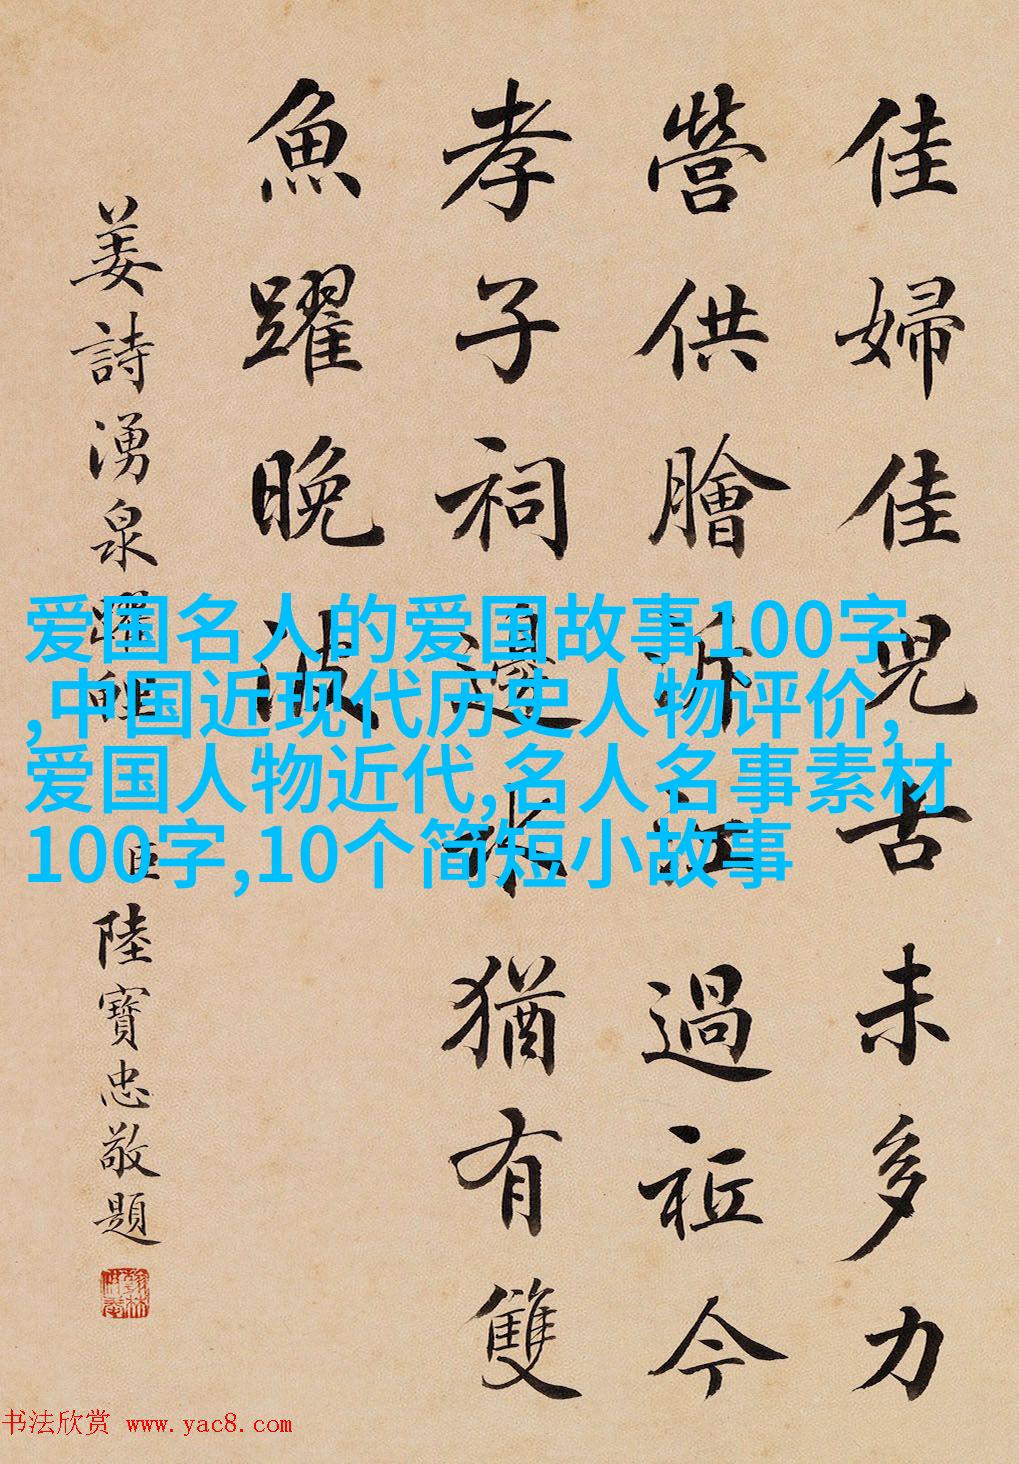 佳婦佳兒古未多力
營供膾泝江過祗今
孝子祠邊水猶有雙
魚躍晚波
姜詩湧泉躍鯉 臣陸寶忠敬題
爱国名人的爱国故事100字
,中国近现代历史人物评价,
爱国人物近代,名人名事素材
100字,10个简短小故事
书法欣赏 www.yac8.com